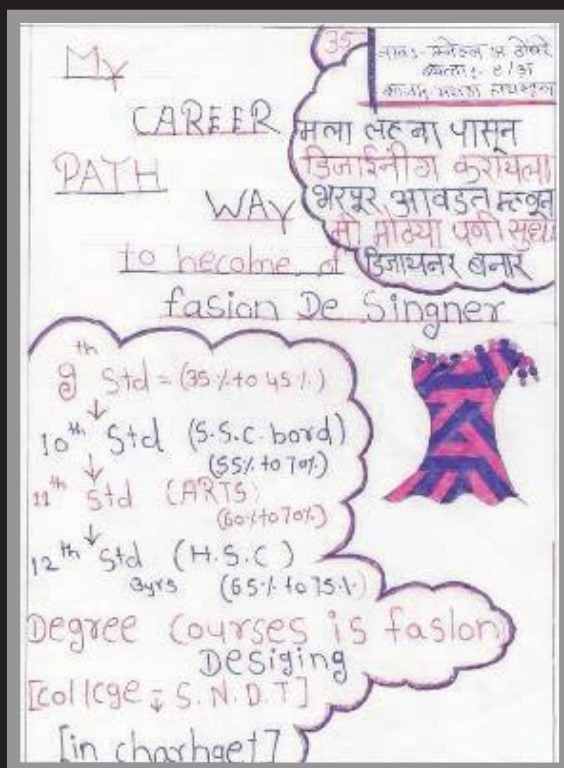 35
My
CAREER
PATH
WAY
to become of
fasion De Singner
मला लहान पासून
डिजाईनींग करायला
भरपूर आवडत म्हणून
मी मोठ्या पणी सुद्धा
डिजायनर बनार
9th Std = (35% to 45%)
10th Std (S.S.C. bord)
(55% to 70%)
11th Std (ARTS)
(60% to 70%)
12th Std (H.S.C)
3yrs (65% to 75%)
Degree Courses is fasion
Desiging
[college = S.N.D.T]
[in charhget]